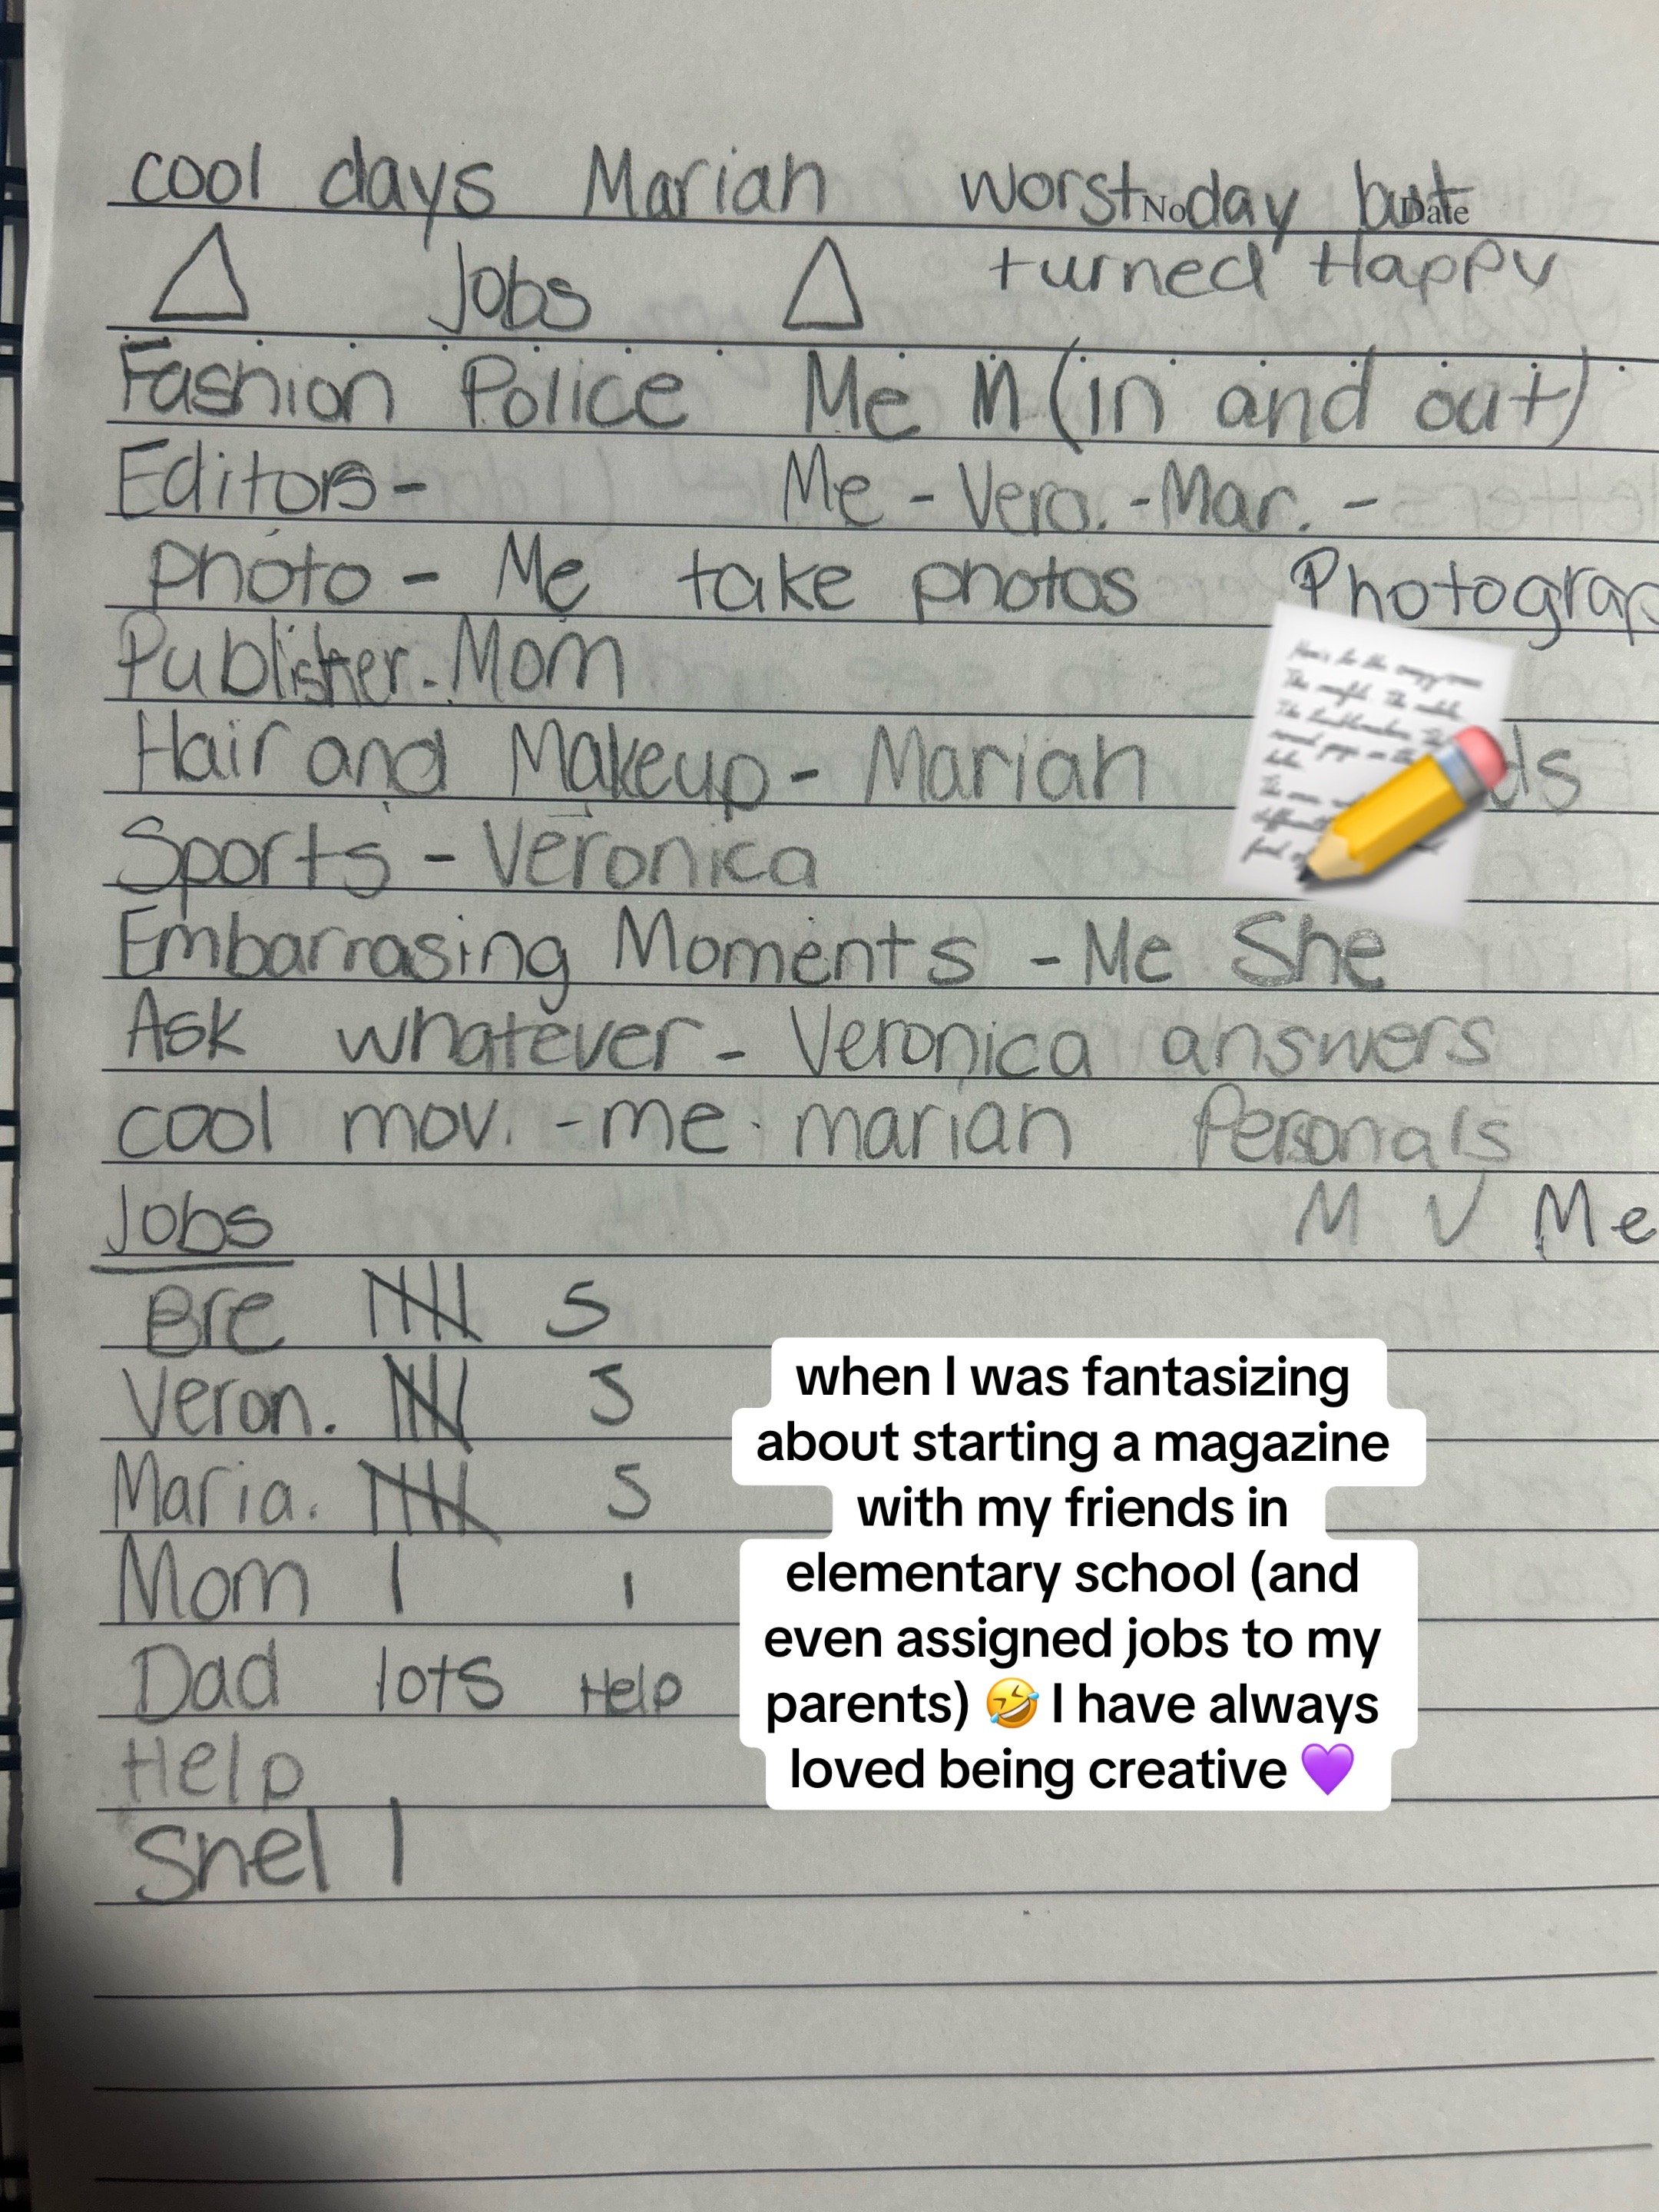 cool days Marian worst day but
No Date
△ Jobs △ turned Happy
Fashion Police Me M (in and out)
Editors - Me - Vero. - Mar. -
photo - Me take photos Photograp
Publisher. Mom
Hair and Makeup - Marian
Sports - Veronica
Embarrasing Moments - Me She
Ask whatever - Veronica answers
cool mov. - me. marian Personals
Jobs M V Me
Bre 5
Veron. 5
Maria. 5
Mom | 1
Dad lots Help
Help
Shel |
when I was fantasizing
about starting a magazine
with my friends in
elementary school (and
even assigned jobs to my
parents) 🤣 I have always
loved being creative 💜